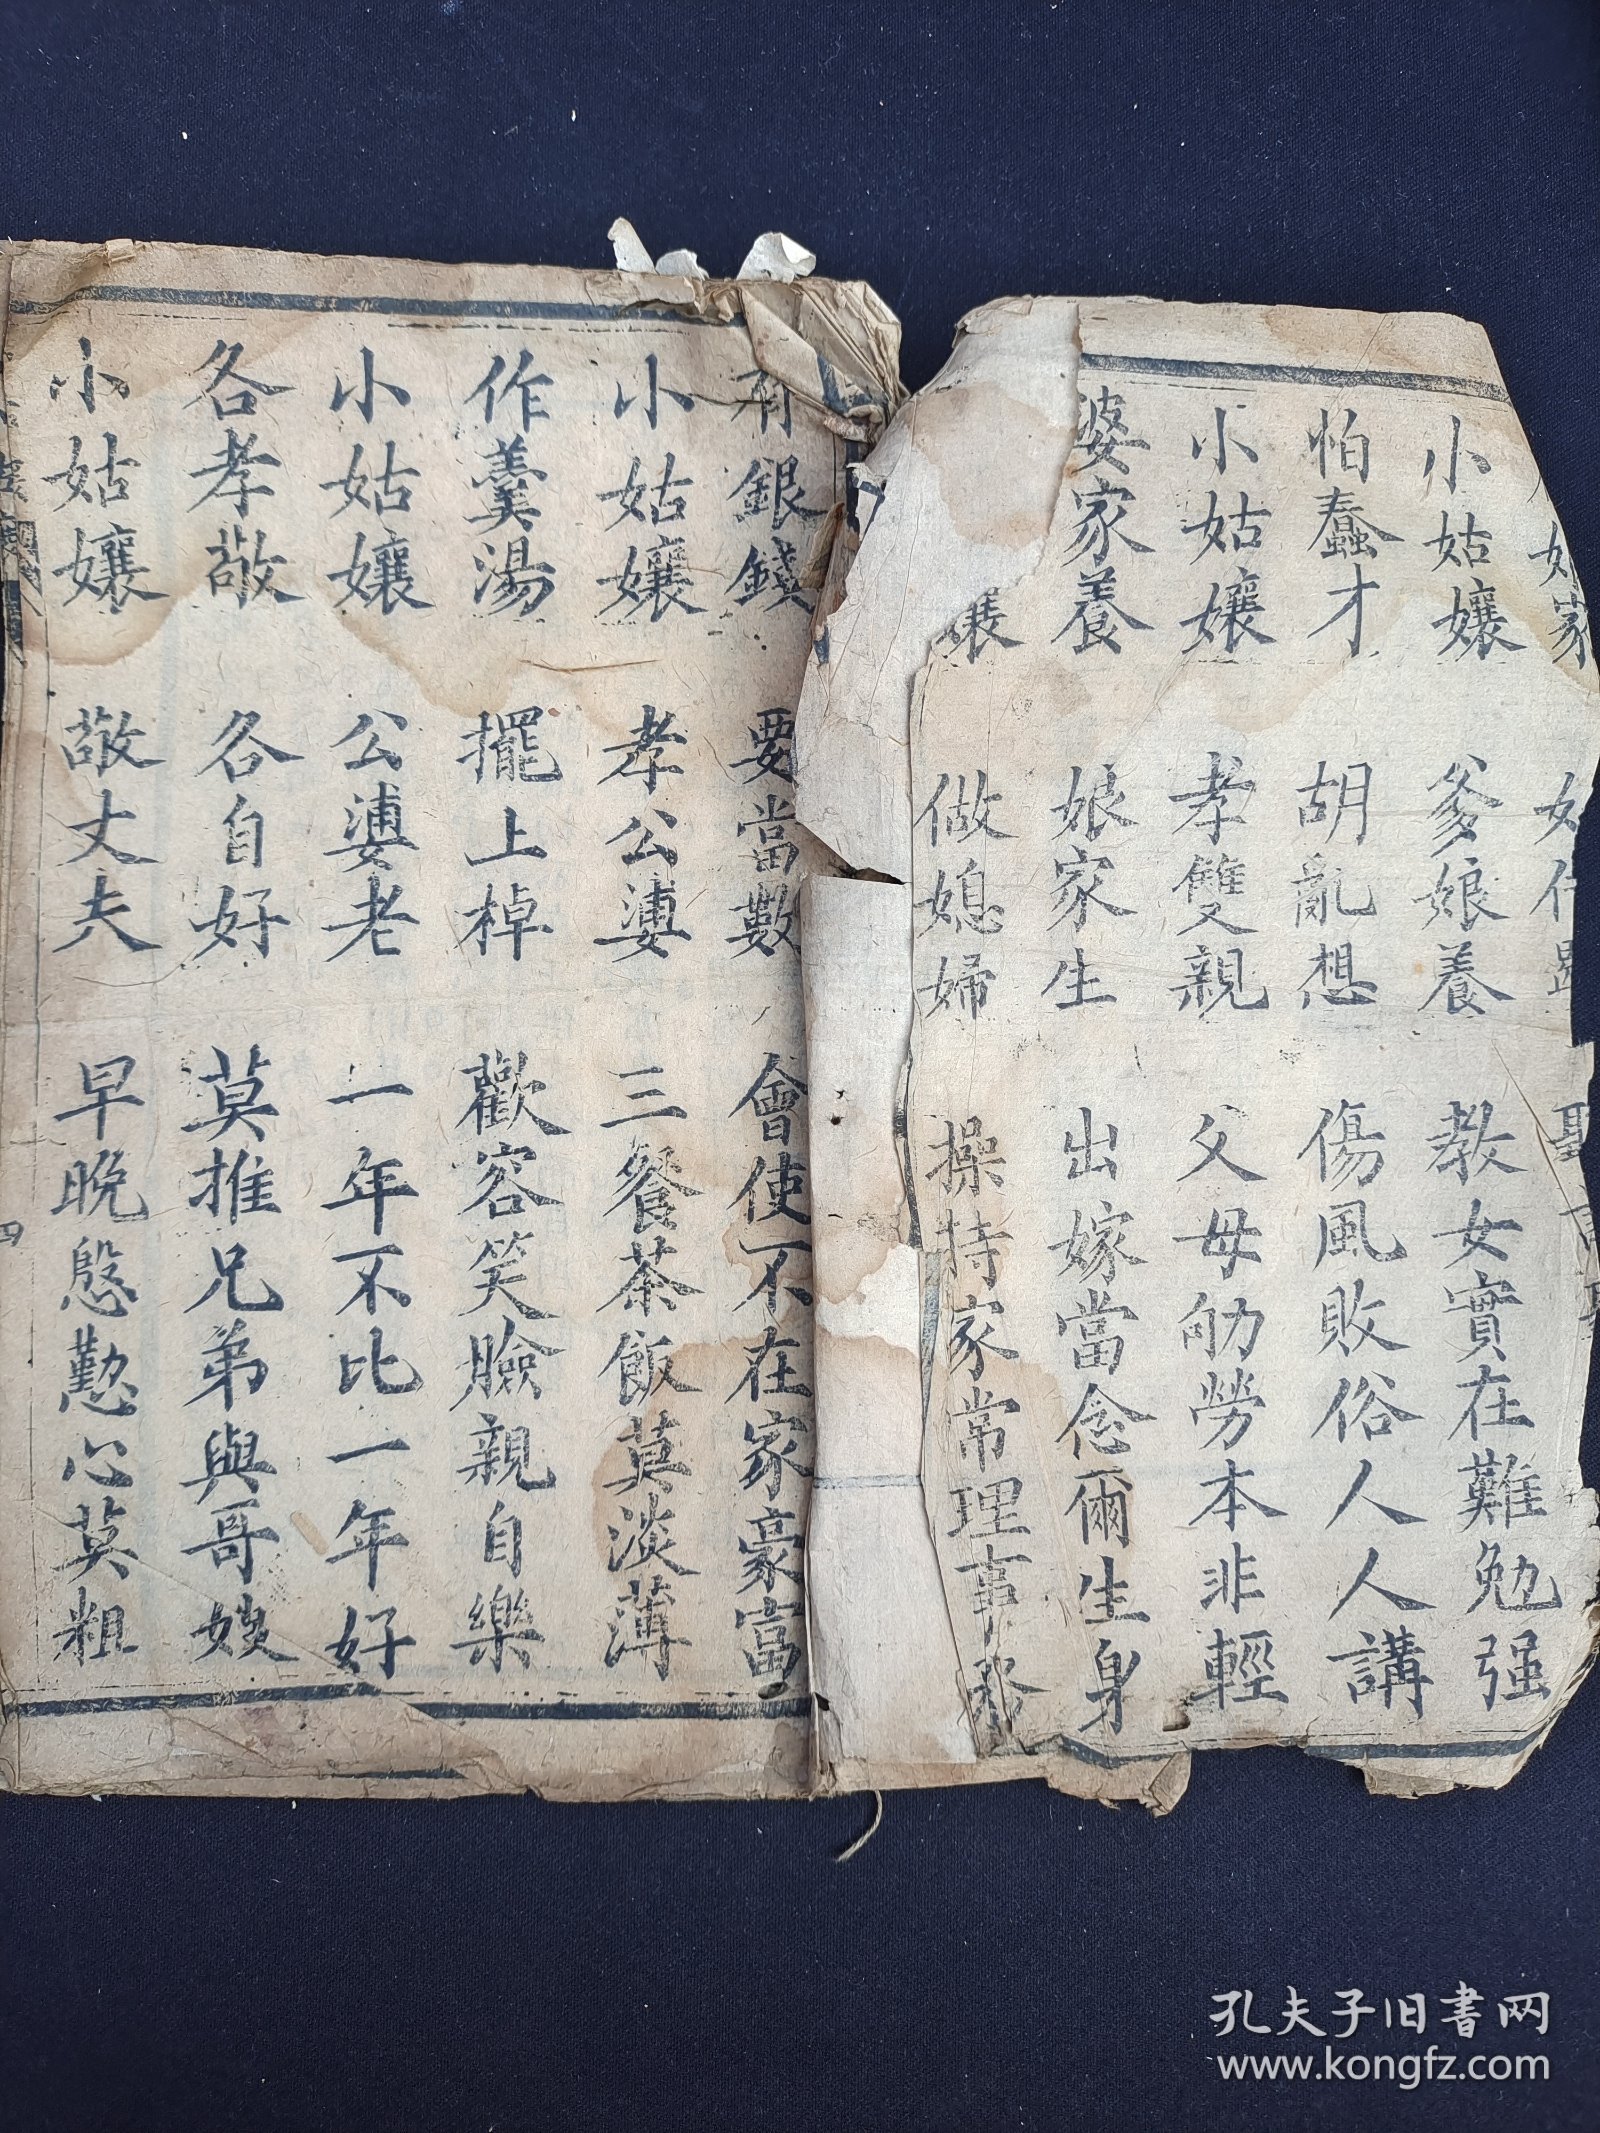 小姑孃 爹娘養 教女實在難勉强
怕蠢才 胡亂想 傷風敗俗人人講
小姑孃 孝雙親 父母劬勞本非輕
婆家養 娘家生 出嫁當念爾生身
孃 做媳婦 操持家常理事
有銀錢 要當數 會使不在家豪富
小姑孃 孝公婆 三餐茶飯莫淡薄
作羹湯 擺上棹 歡容笑臉親自樂
小姑孃 公婆老 一年不比一年好
各孝敬 各自好 莫推兄弟與哥嫂
小姑孃 敬丈夫 早晚慇懃心莫粗
四
孔夫子旧书网
www.kongfz.com